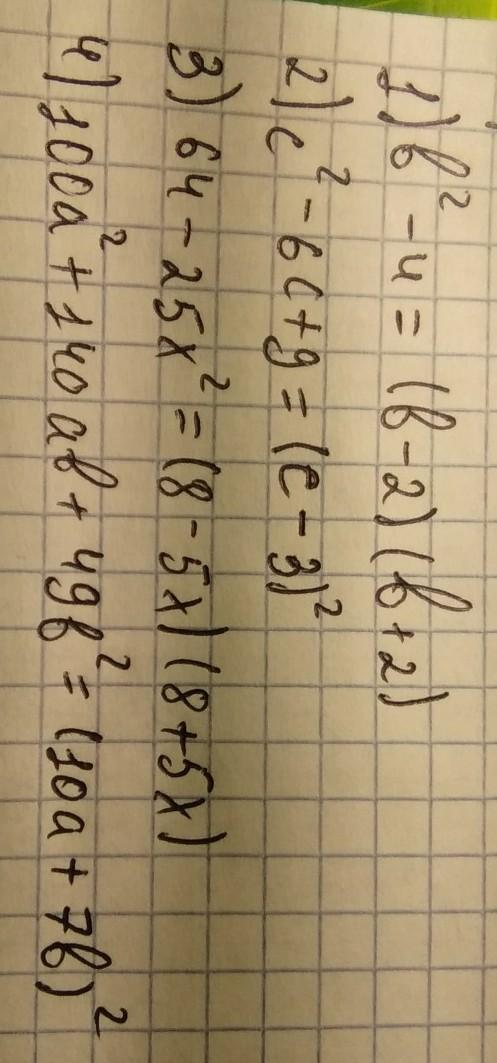 1) b² - 4 = (b - 2)(b + 2)
2) c² - 6c + 9 = (c - 3)²
3) 64 - 25x² = (8 - 5x)(8 + 5x)
4) 100a² + 140ab + 49b² = (10a + 7b)²